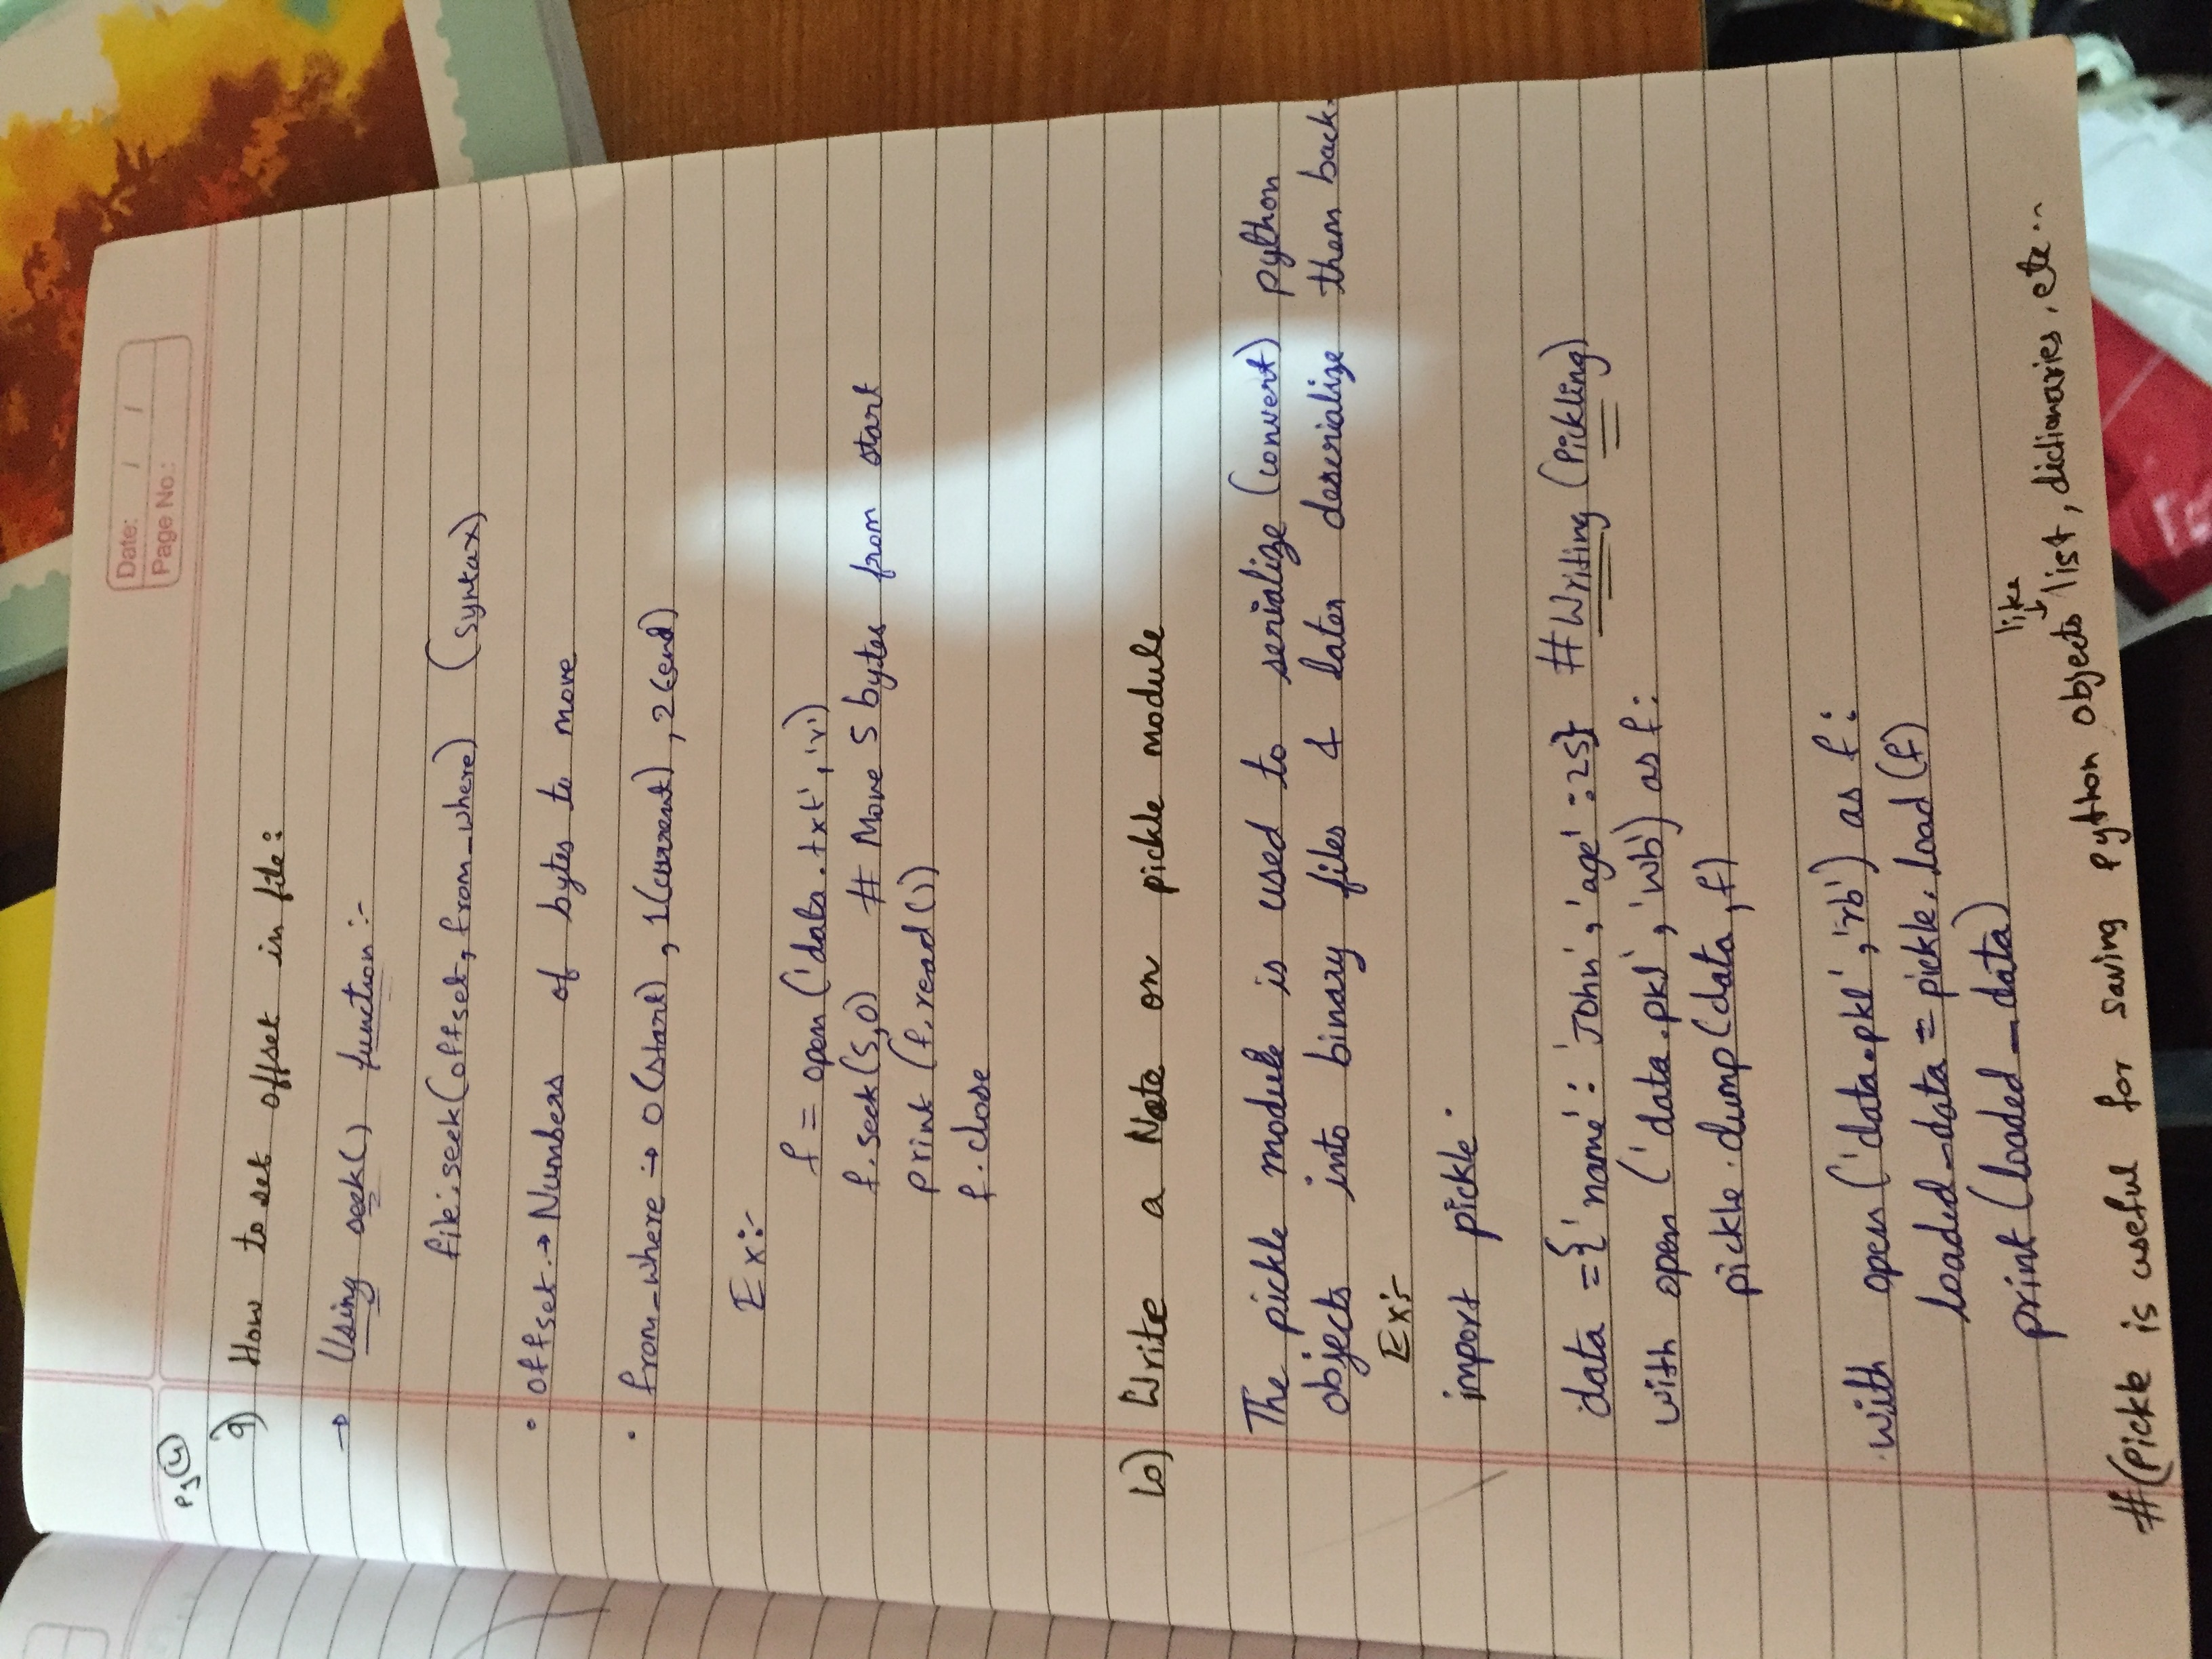 Date: / /
Page No.:
Pg 4
9) How to set offset in file:
→ Using seek() function :-
file.seek(offset, from_where) (syntax)
• offset → Numbers of bytes to move
• from_where → 0(start), 1(current), 2(end)
Ex:-
f = open('data.txt','r')
f.seek(5,0) # Move 5 bytes from start
print (f.read())
f.close
10) Write a Note on pickle module
The pickle module is used to serialize (convert) python
objects into binary files & later deserialize them back.
Ex:-
import pickle
data = {'name': 'John', 'age' :25} # Writing (Pickling)
with open ('data.pkl', 'wb') as f:
pickle.dump(data, f)
with open ('data.pkl', 'rb') as f:
loaded_data = pickle.load(f)
print (loaded_data)
like
↓
#(Pickle is useful for saving python objects list, dictionaries, etc..